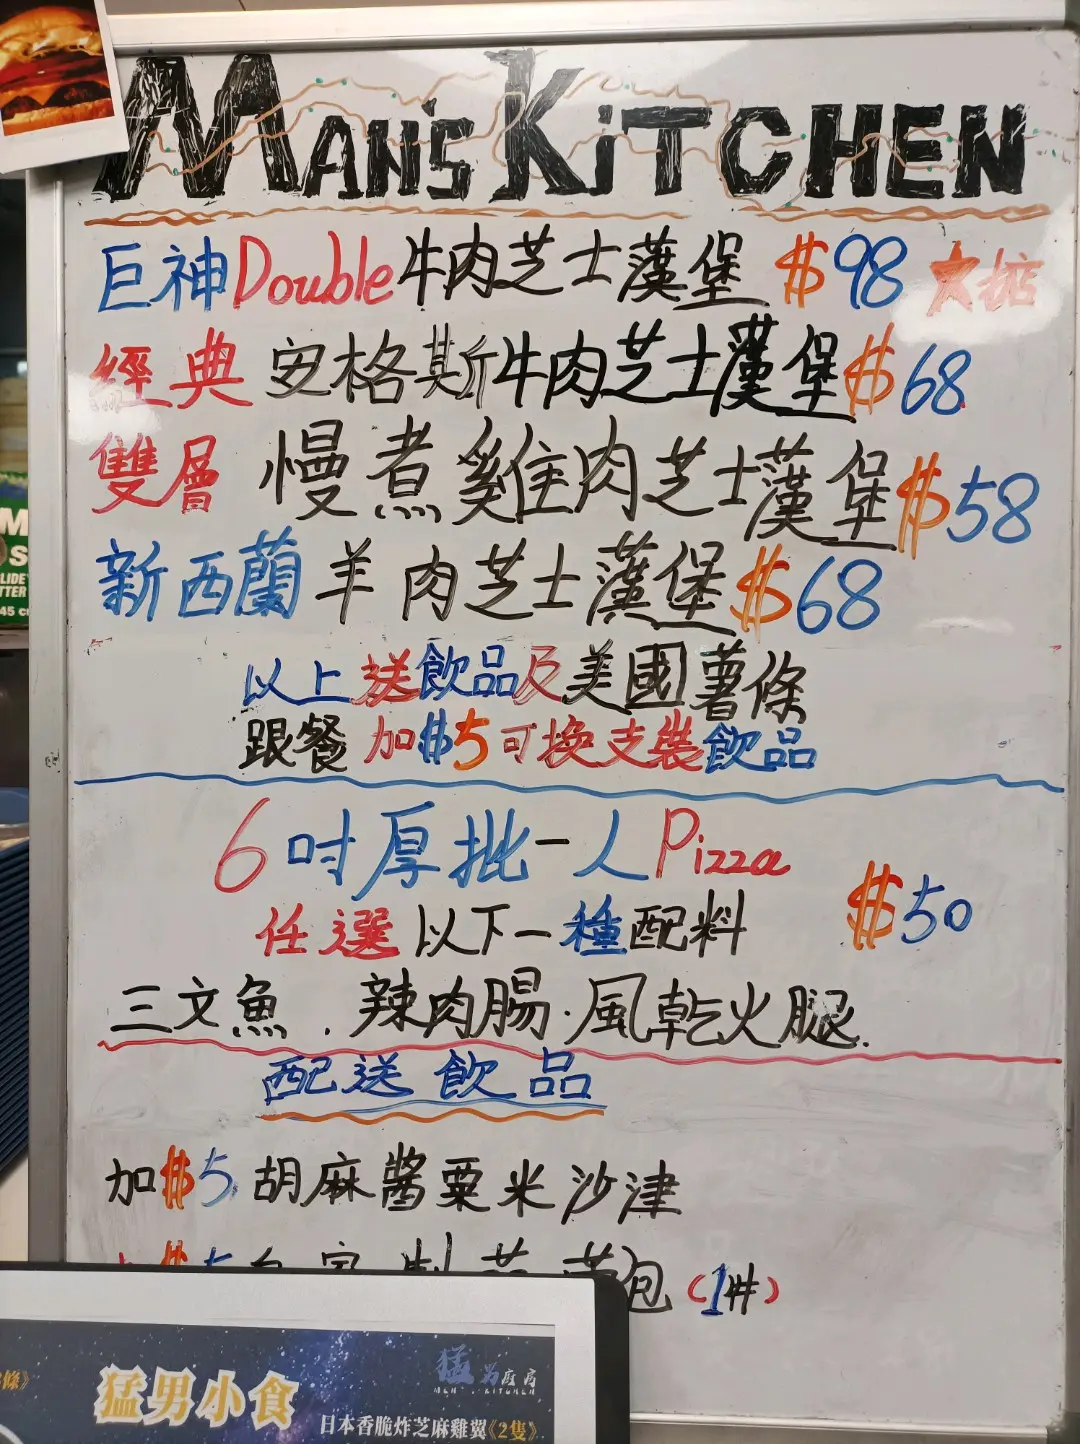 MAN'S KiTCHEN
巨神Double牛肉芝士漢堡 $98 大掂
經典 安格斯牛肉芝士漢堡 $68
雙層 慢煮雞肉芝士漢堡 $58
新西蘭 羊肉芝士漢堡 $68
以上送飲品及美國薯條
跟餐加$5可換支裝飲品
6吋厚批一人Pizza
$50
任選以下一種配料
三文魚．辣肉腸．風乾火腿．
配送飲品
加$5 胡麻醬粟米沙津
(1件)
猛男小食
猛男廚房
日本香脆炸芝麻雞翼《2隻》